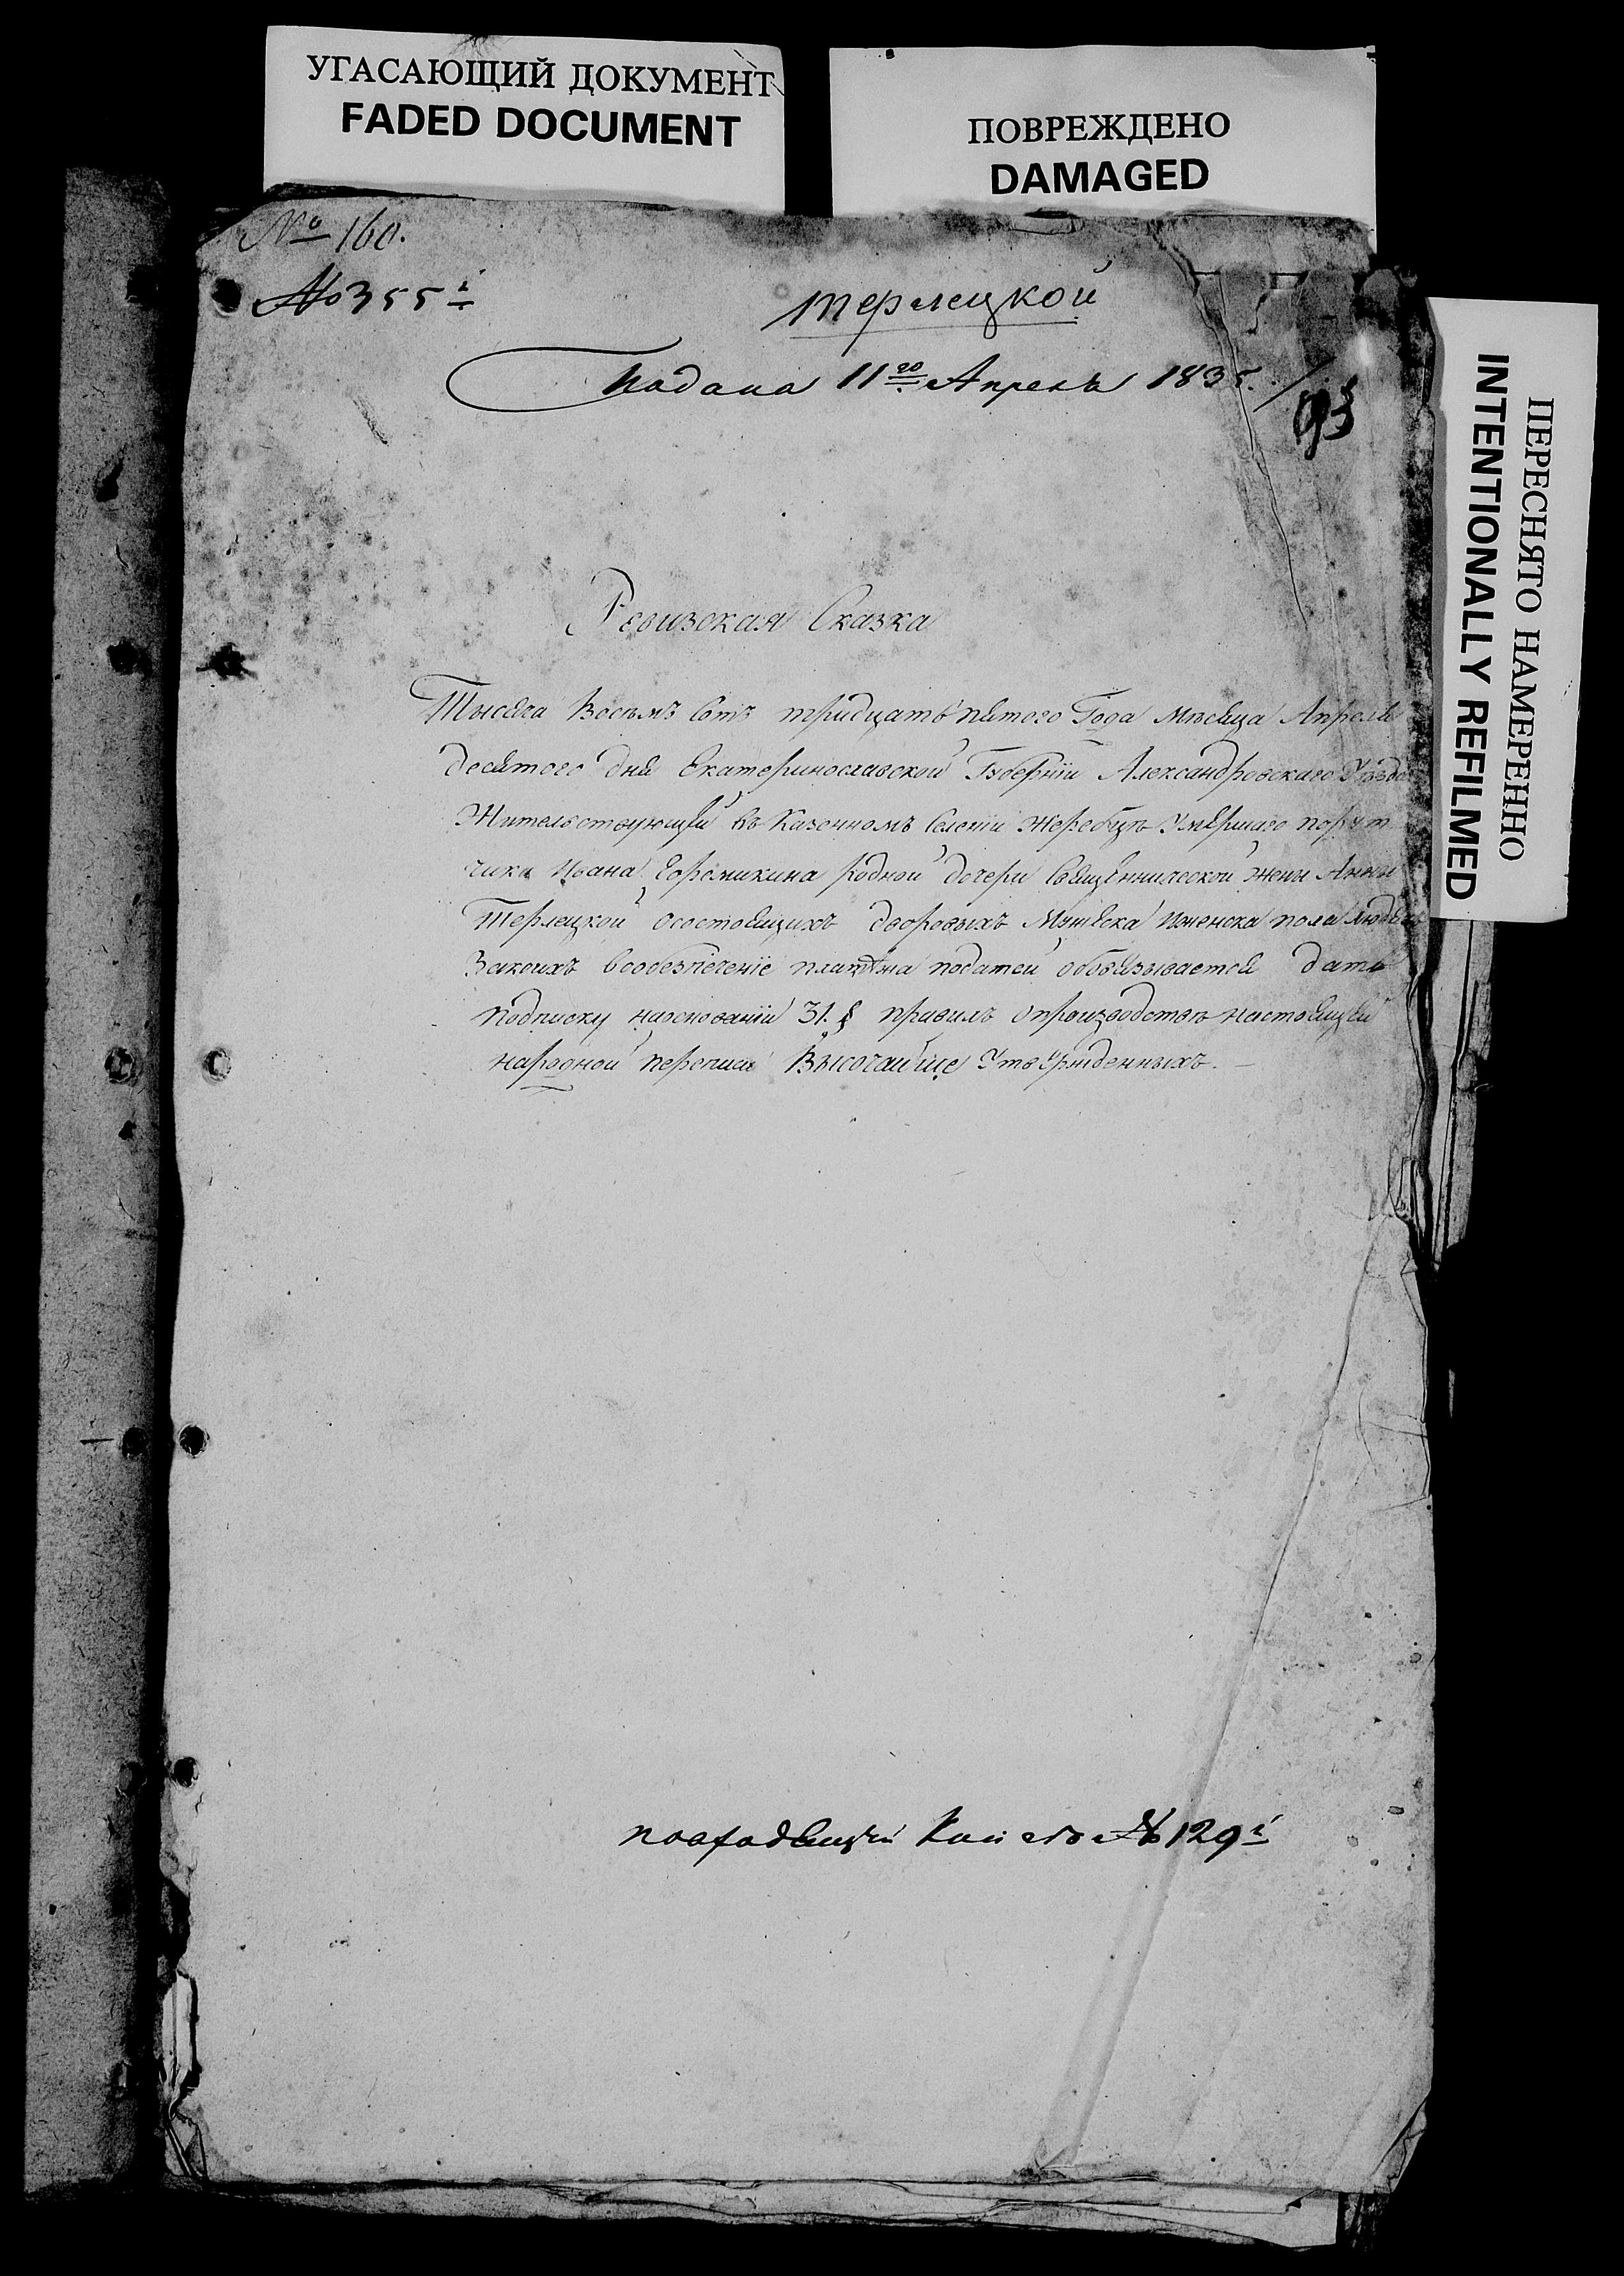 УГАСАЮЩИЙ ДОКУМЕНТ
FADED DOCUMENT
ПОВРЕЖДЕНО
DAMAGED
ПЕРЕСНЯТО НАМЕРЕННО
INTENTIONALLY REFILMED
№ 160.
№ 355й
терлецкой
Подана 11го Апреля 1835.
93
Ревизская Сказка
Тысяча Восемъ Сотъ тридцать пятого Года Мѣсяца Апреля
десятого дня Екатеринославской Губернiи Александровскаго Уѣзда
Жительствующей въ Казенномъ Селенiи Жеребцѣ Умершаго порут
чика Ивана родной дочери Священнической жены Анны
Терлецкой осостоящихъ дворовыхъ Мужеска Иженска пола людяхъ
Закоихъ вообезпеченiе податей обовязывается дать
подписку наоснованiи 31. § правилъ опроизводствѣ настоящей
народной переписи Высочайше Утвержденныхъ.
№ 129й